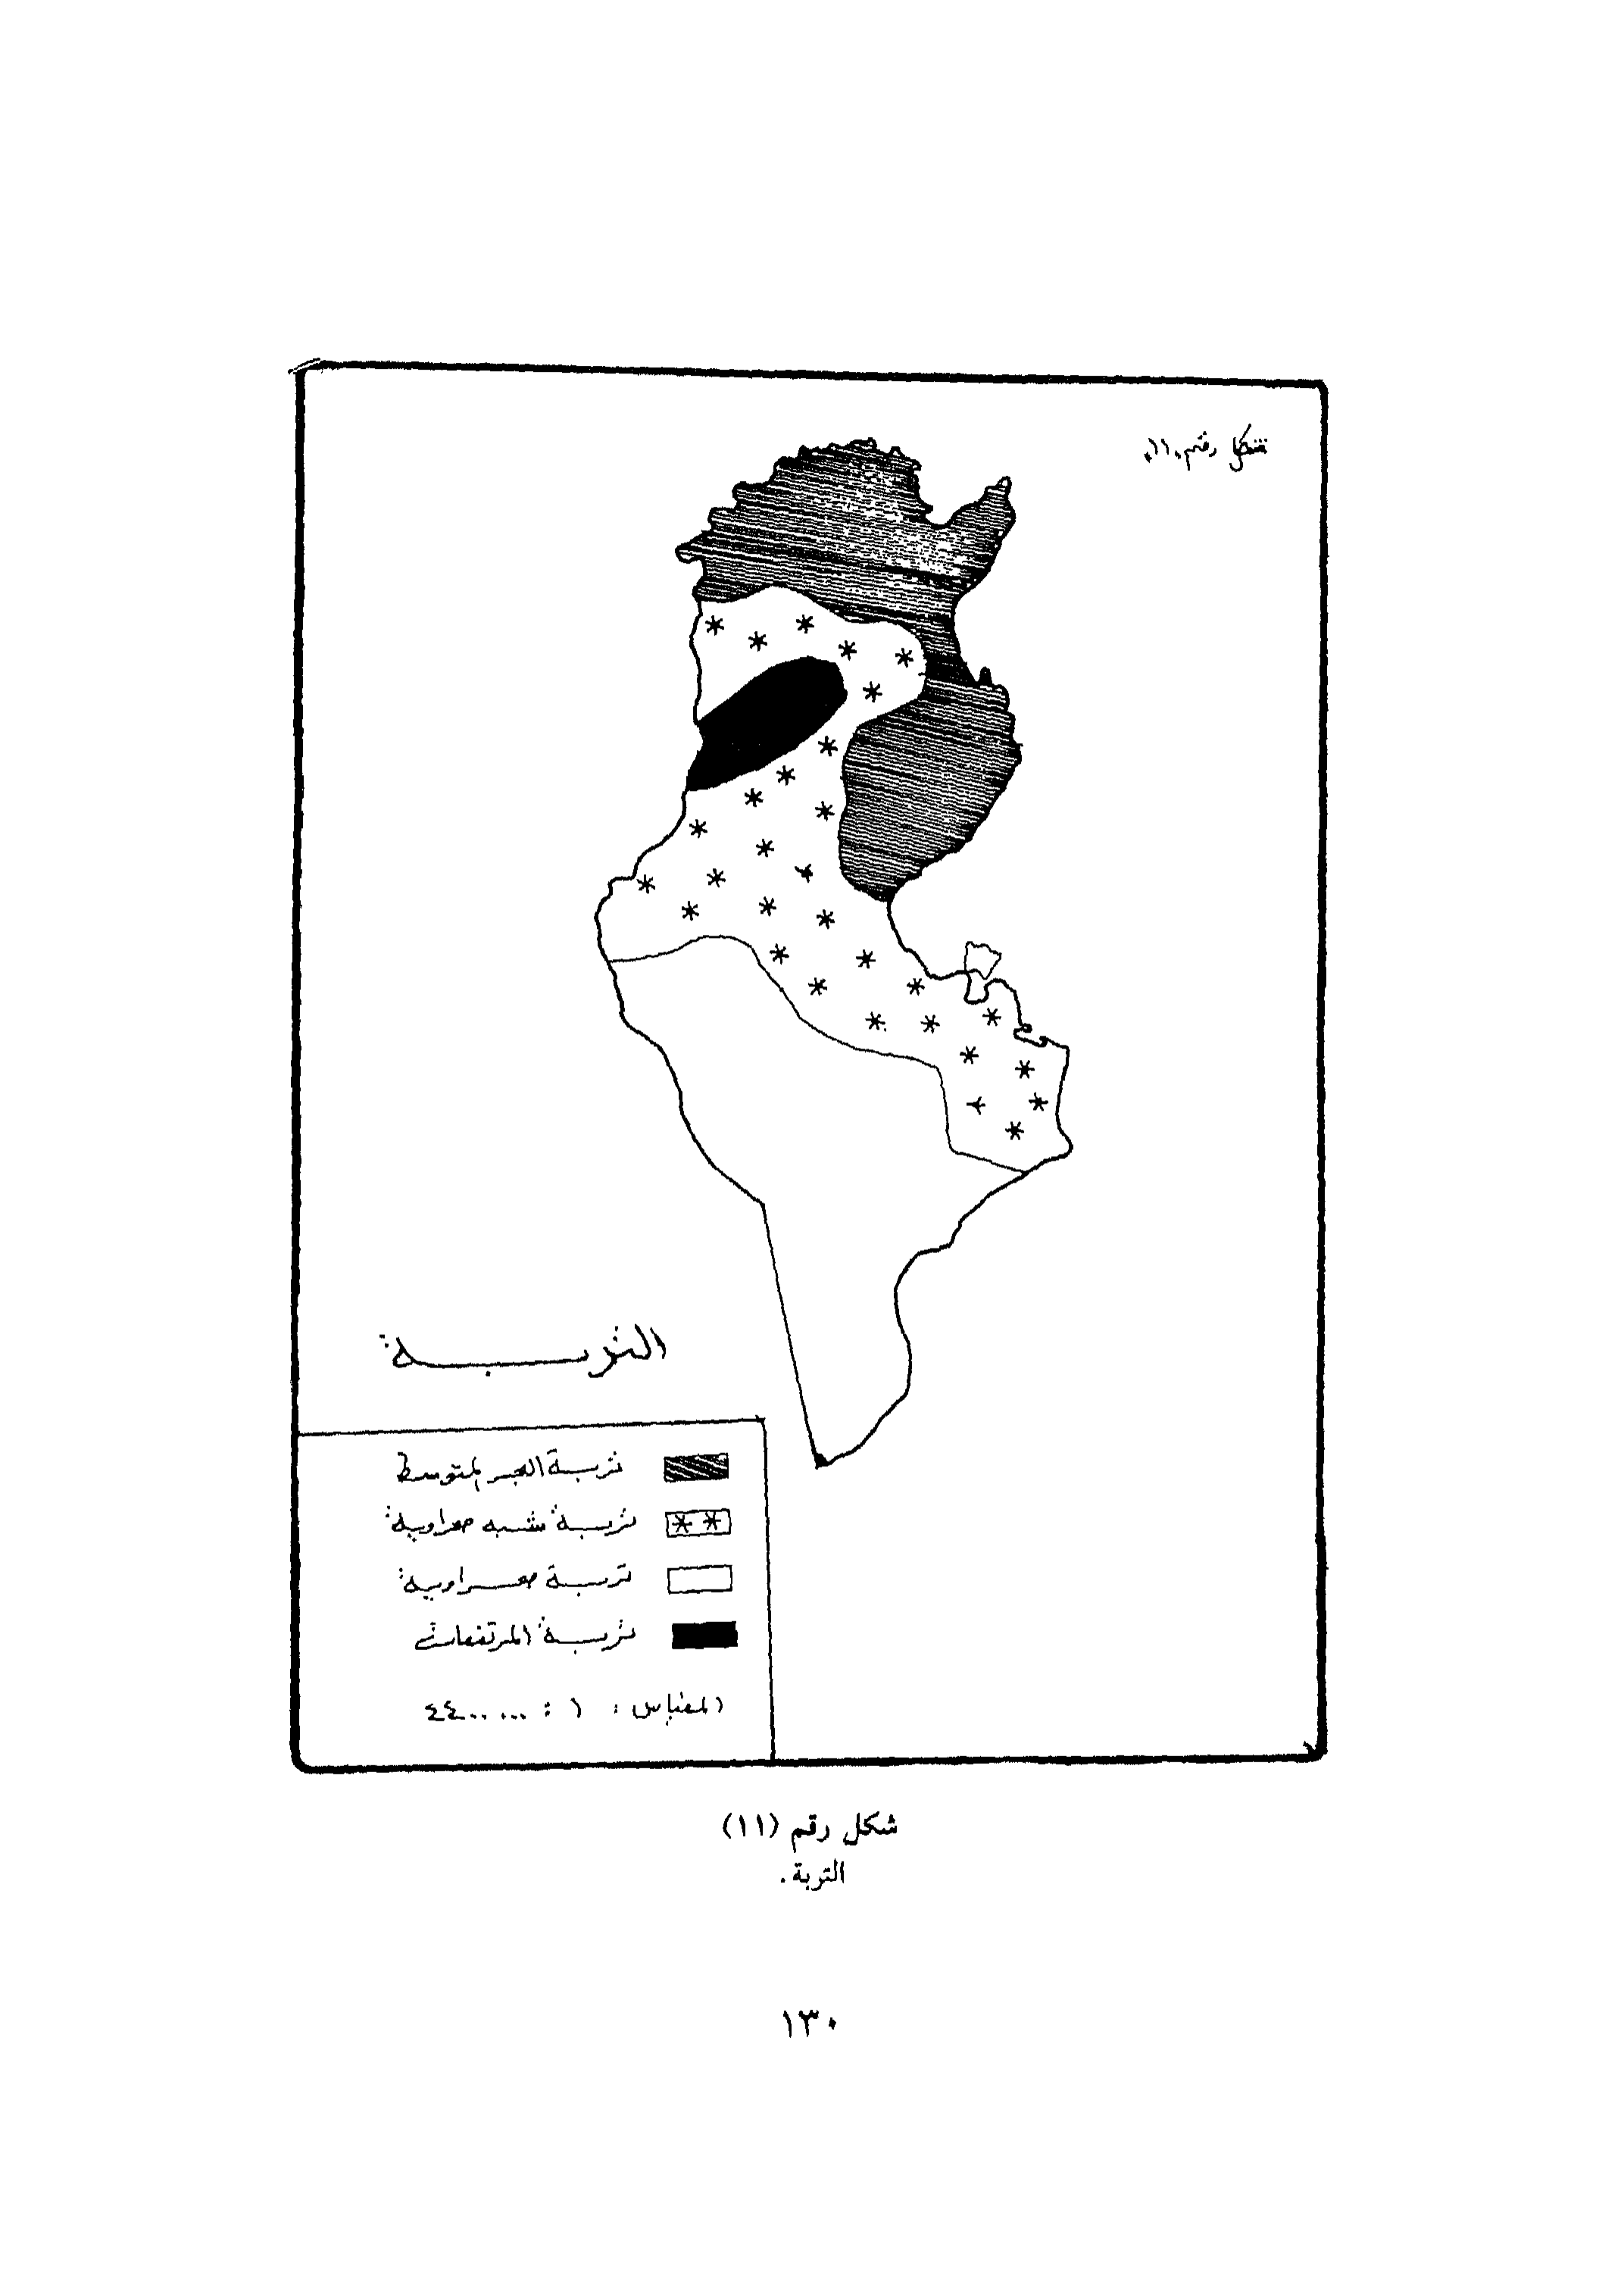 شكل رقم ١١
التربة
تربة البحر المتوسط
تربة شبه صحراوية
تربة صحراوية
تربة المرتفعات
المقياس : ١ : ٤٤٠٠٠٠٠
شكل رقم (١١)
التربة .
١٣٠